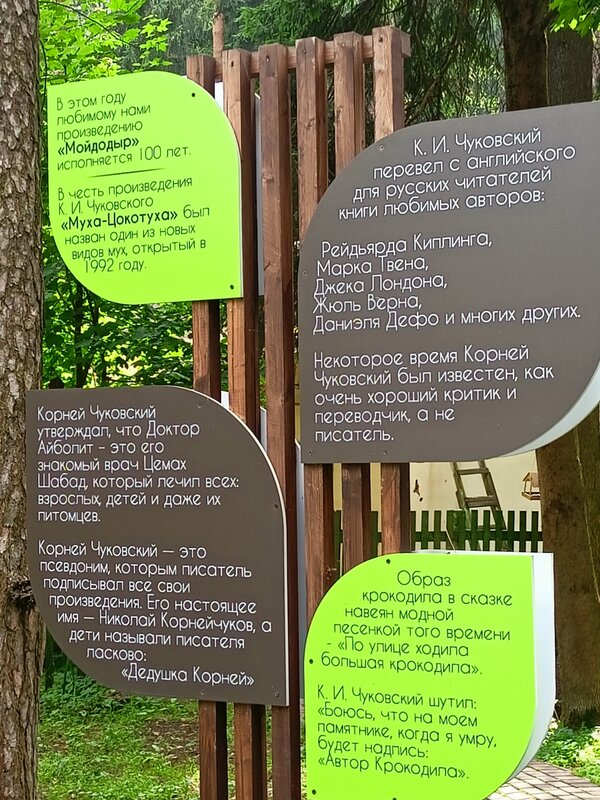 В этом году
любимому нами
произведению
«Мойдодыр»
исполняется 100 лет.
В честь произведения
К. И. Чуковского
«Муха-Цокотуха» был
назван один из новых
видов мух, открытый в
1992 году.
К. И. Чуковский
перевел с английского
для русских читателей
книги любимых авторов:
Рейдьярда Киплинга,
Марка Твена,
Джека Лондона,
Жюль Верна,
Даниэля Дефо и многих других.
Некоторое время Корней
Чуковский был известен, как
очень хороший критик и
переводчик, а не
писатель.
Корней Чуковский
утверждал, что Доктор
Айболит – это его
знакомый врач Цемах
Шабад, который лечил всех:
взрослых, детей и даже их
питомцев.
Корней Чуковский — это
псевдоним, которым писатель
подписывал все свои
произведения. Его настоящее
имя — Николай Корнейчуков, а
дети называли писателя
ласково:
«Дедушка Корней»
Образ
крокодила в сказке
навеян модной
песенкой того времени
- «По улице ходила
большая крокодила».
К. И. Чуковский шутил:
«Боюсь, что на моем
памятнике, когда я умру,
будет надпись:
«Автор Крокодила».